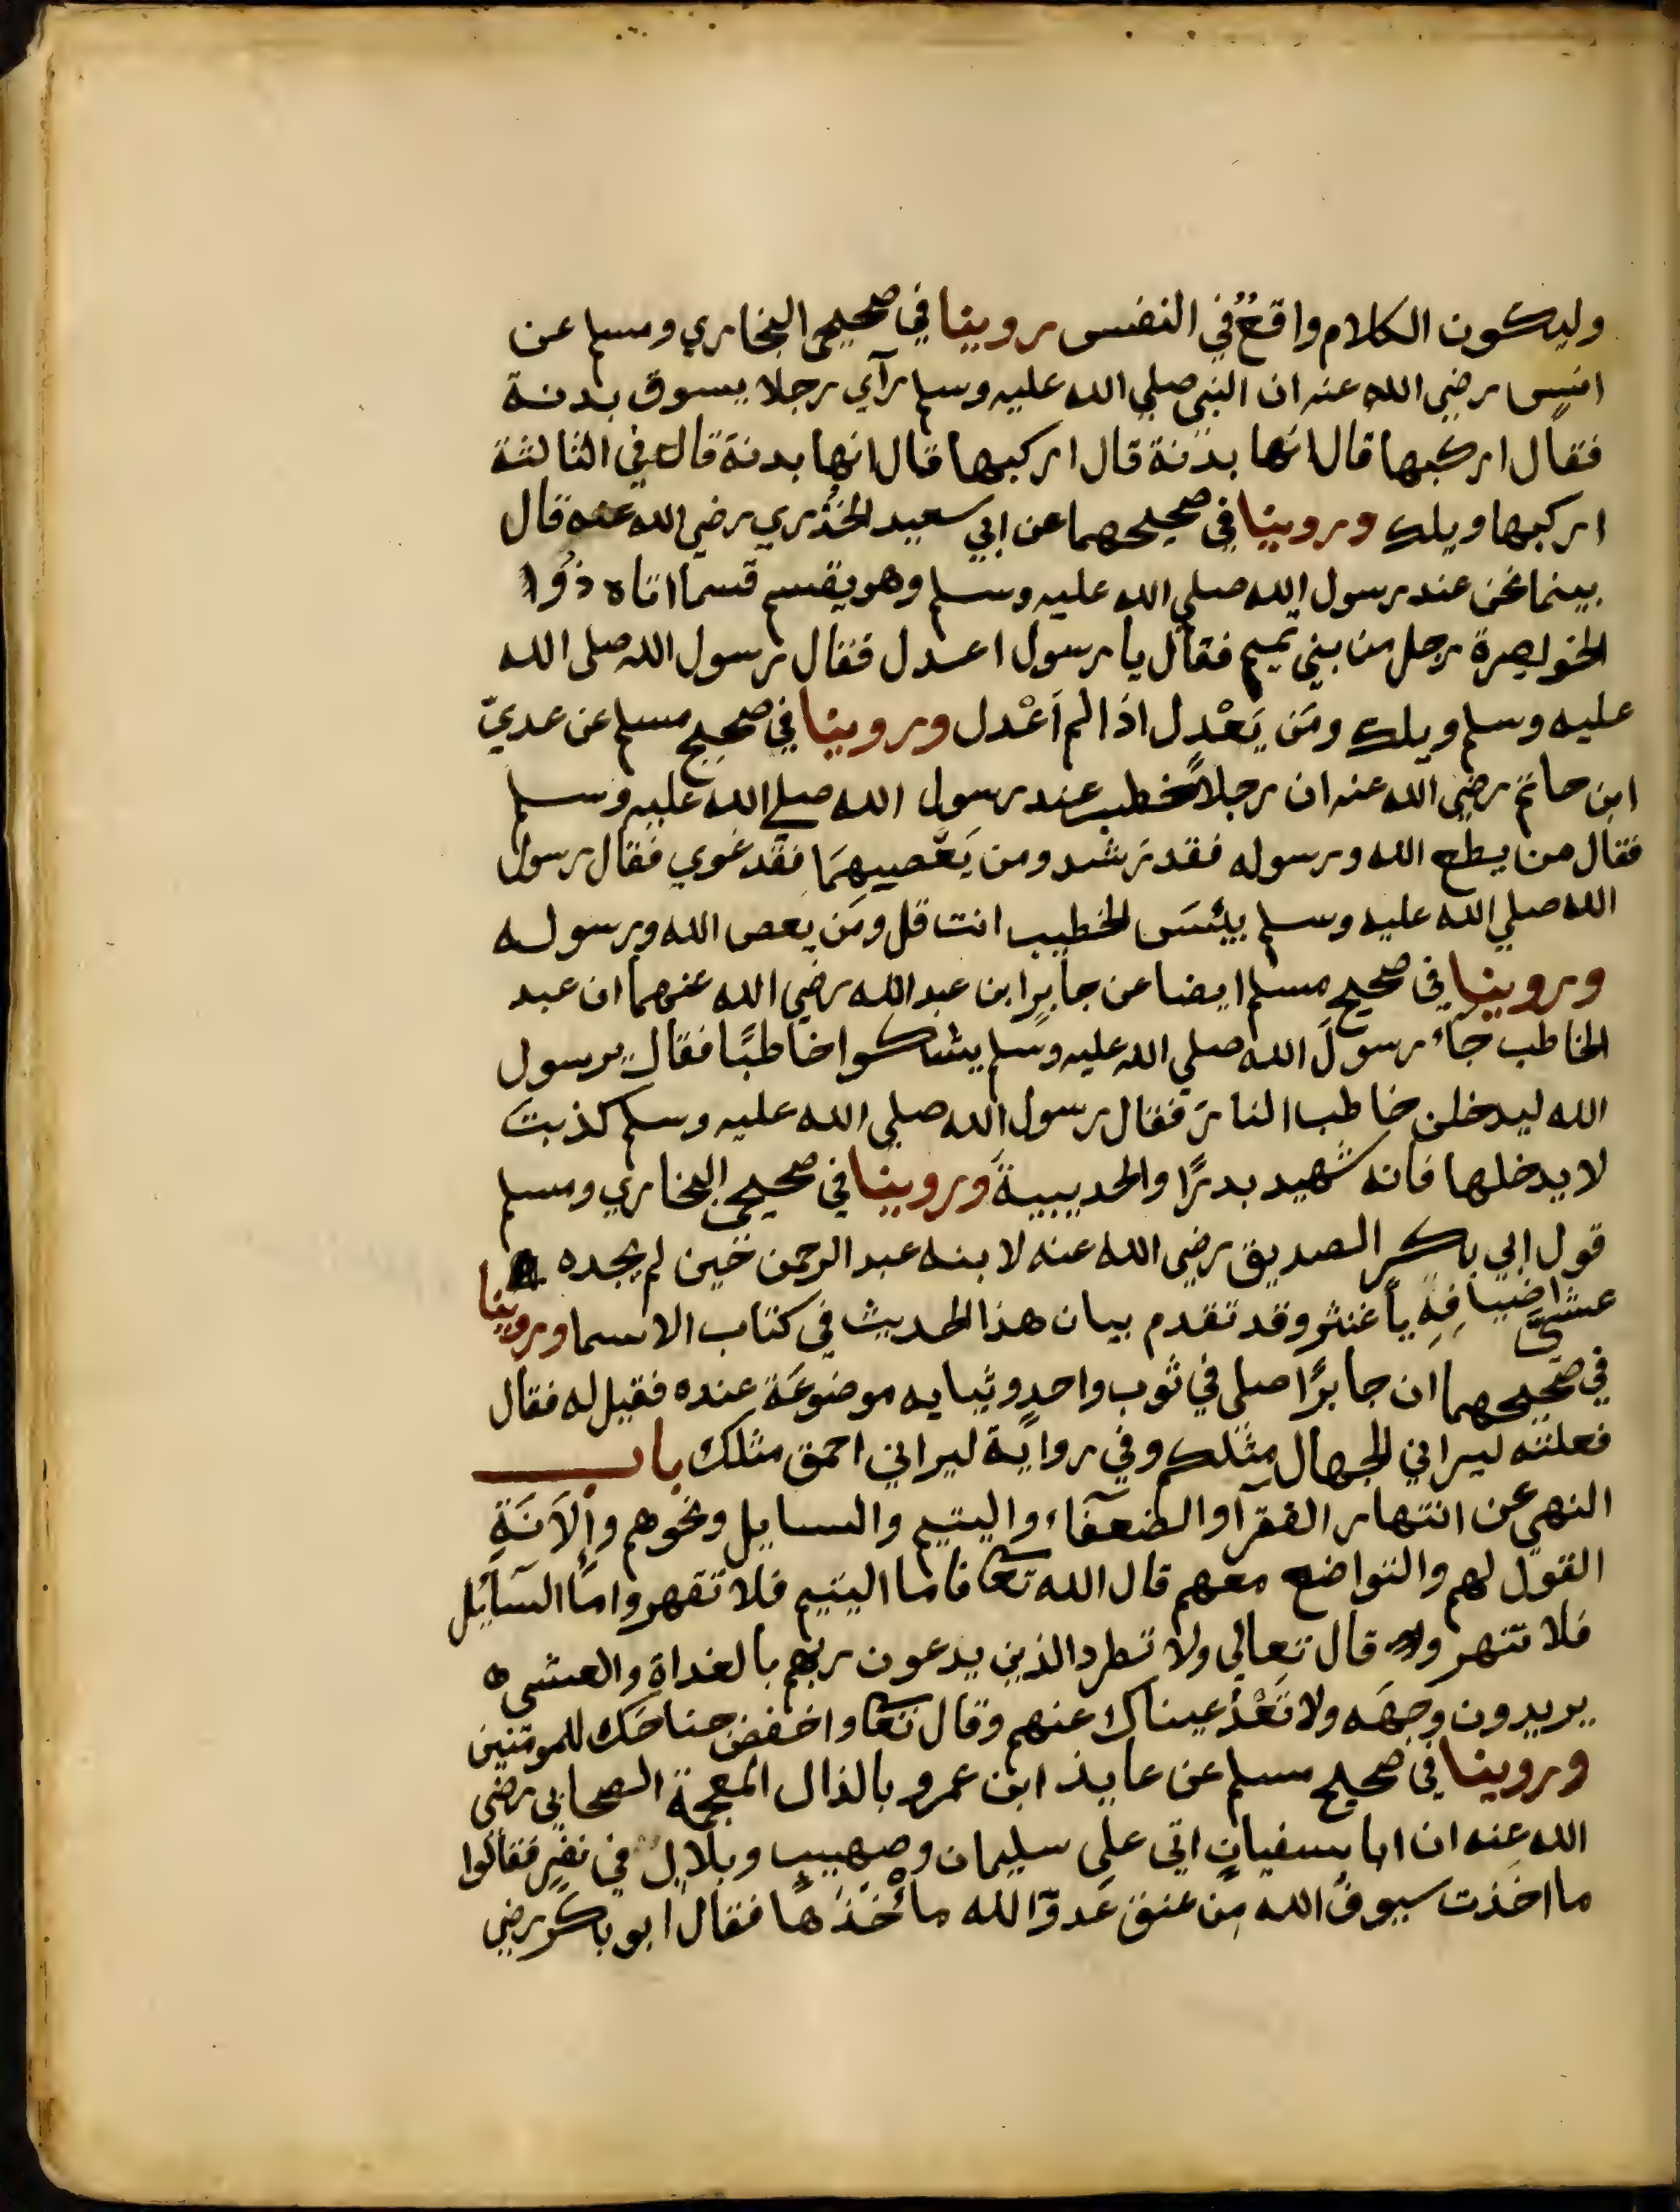 وليكون الكلام واقعٌ في النفس روينا في صحيحى البخاري ومسلم عن
انسٍ رضي الله عنه ان النبي صلي الله عليه وسلم رآي رجلا يسوق بدنة
فقال اركبها قال انها بدنة قال اركبها قال انها بدنة قال في الثالثة
اركبها ويلك وروينا في صحيحهما عن ابي سعيد الخُدري رضي الله عنه قال
بينما نحن عند رسول الله صلي الله عليه وسلم وهو يقسم قسما اتاه ذُوا
الخويصرة رجل من بني تميم فقال يا رسول اعدل فقال رسول الله صلى الله
عليه وسلم ويلك ومَن يَعْدِل اذا لم اَعْدل وروينا في صحيح مسلم عن عديّ
ابن حاتم رضي الله عنه ان رجلاً خطب عند رسول الله صلي الله عليه وسلم
فقال من يطع الله ورسوله فقد رشد ومن يَعْصيهمَا فقد غوي فقال رسول
الله صلي الله عليه وسلم بئسَ الخطيب انت قل ومَن يعص الله ورسوله
وروينا في صحيح مسلم ايضا عن جابرٍ ابن عبد الله رضي الله عنهما ان عبد
الخاطب جاء رسولَ الله صلي الله عليه وسلم يشكوا خاطبًا فقال يرسول
الله ليدخلن خاطب النارَ فقال رسول الله صلي الله عليه وسلم كذبت
لا يدخلها فانه شهيد بدرًا والحديبيةَ وروينا في صحيحى البخاري ومسلم
قول ابي بكر الصديق رضي الله عنه لابنه عبد الرحمن حين لم يجده
عشىّ اضيافِهِ يا غنثر وقد تقدم بيان هذا الحديث في كتاب الاسما وروينا
في صحيحهما ان جابرًا صلى في ثوب واحدٍ وثيابه موضوعَة عنده فقيل له فقال
فعلته ليراني الجهال مثلكم وفي رواية ليراني احمق مثلك باب
النهي عن انتهار الفقرآ والضعفَآء واليتيم والسايل ونحوهم وإلاَنَةِ
القول لهم والتواضع معهم قال الله تعا فاما اليتيم فلا تقهر وامَّا السَّايُل
فلا تنهر وقال تعالي ولا تطرد الذين يدعون ربهم بالغداة والعشى
يريدون وجهَه ولا تَعْدُ عيناك عنهم وقال تعا واخفض جناحَك للمومنين
وروينا في صحيح مسلم عن عايذ ابن عمرو بالذال المعجمة الصحابي رضي
الله عنه ان ابا سفيان اتي علي سليمان وصهيبٍ وبلالٍ في نفرٍ فقالوا
ما اخذت سيوفُ الله مِن عنق عَدوّ الله مأخَذَهَا فقال ابو بكر رضي